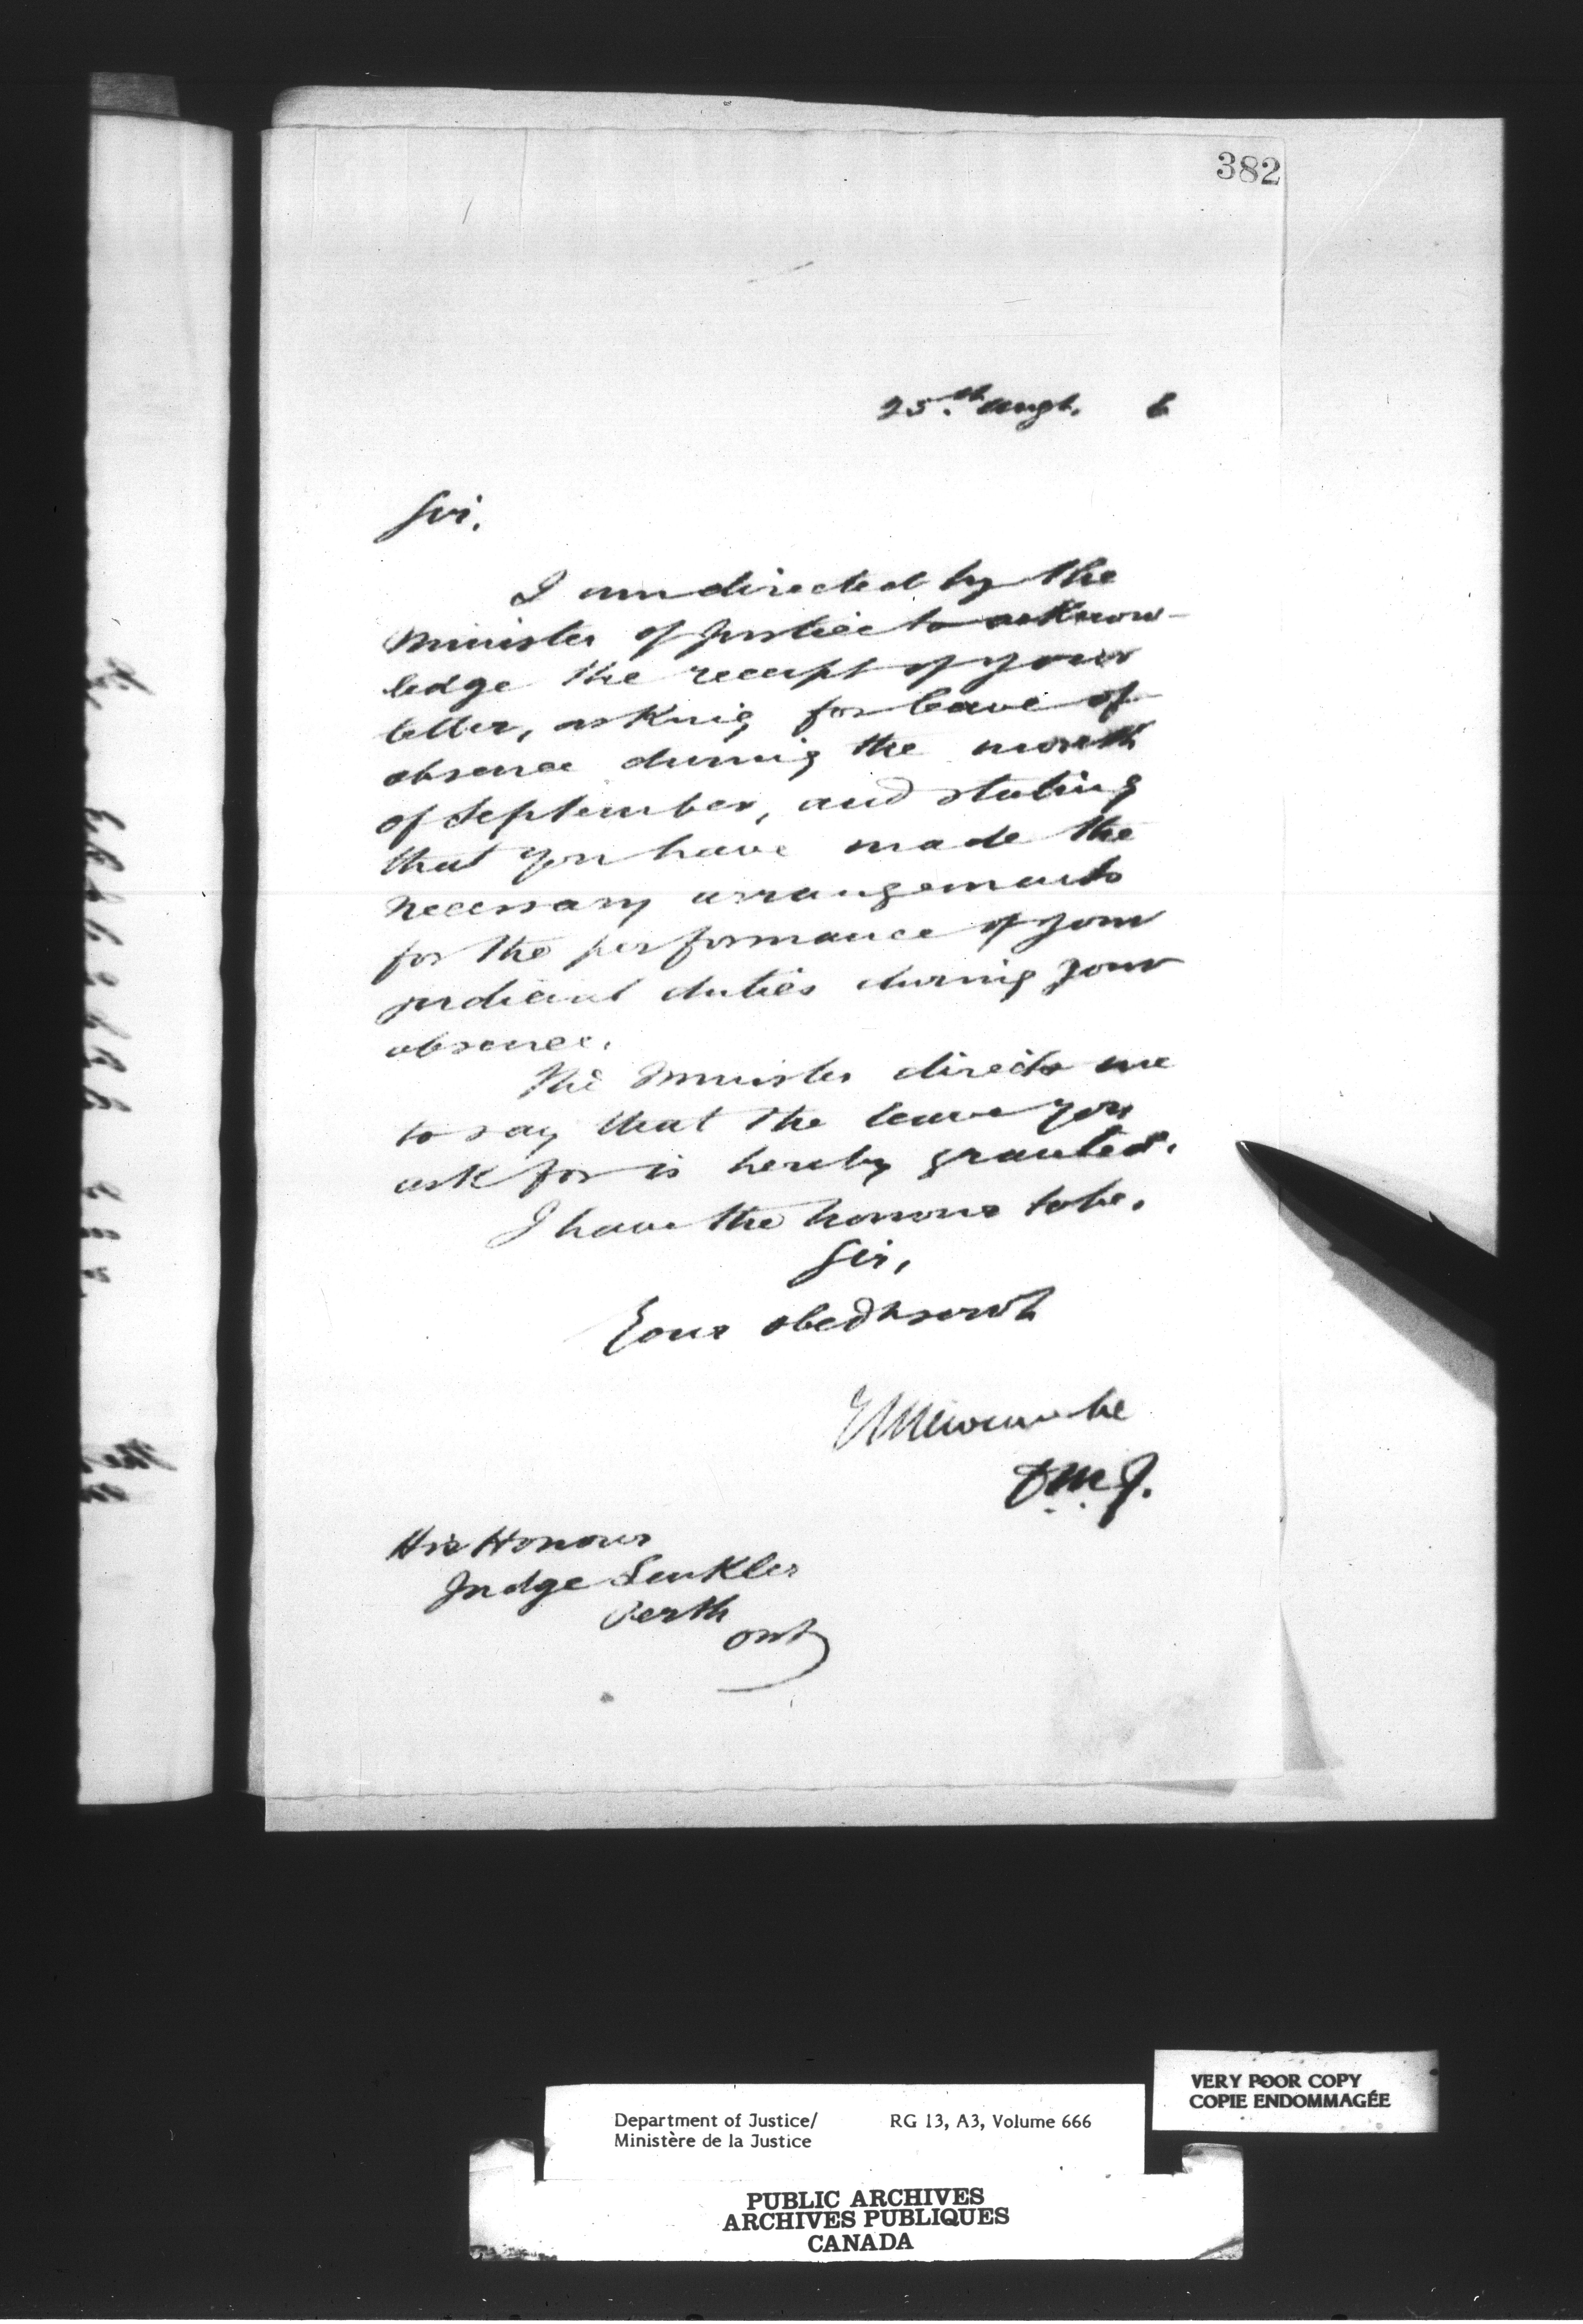 382
25th Augt. 6
Sir,
I am directed by the
Minister of Justice to acknow-
ledge the receipt of your
letter, asking for leave of
absence during the month
of September, and stating
that you have made the
necessary arrangements
for the performance of your
judicial duties during your
absence.
The Minister directs me
to say that the leave you
ask for is hereby granted.
I have the honour to be,
Sir,
Your obedt servt
E L Newcombe
D.M.J.
His Honour
Judge Senkler
Perth
Ont
VERY POOR COPY
COPIE ENDOMMAGÉE
Department of Justice/ RG 13, A3, Volume 666
Ministère de la Justice
PUBLIC ARCHIVES
ARCHIVES PUBLIQUES
CANADA